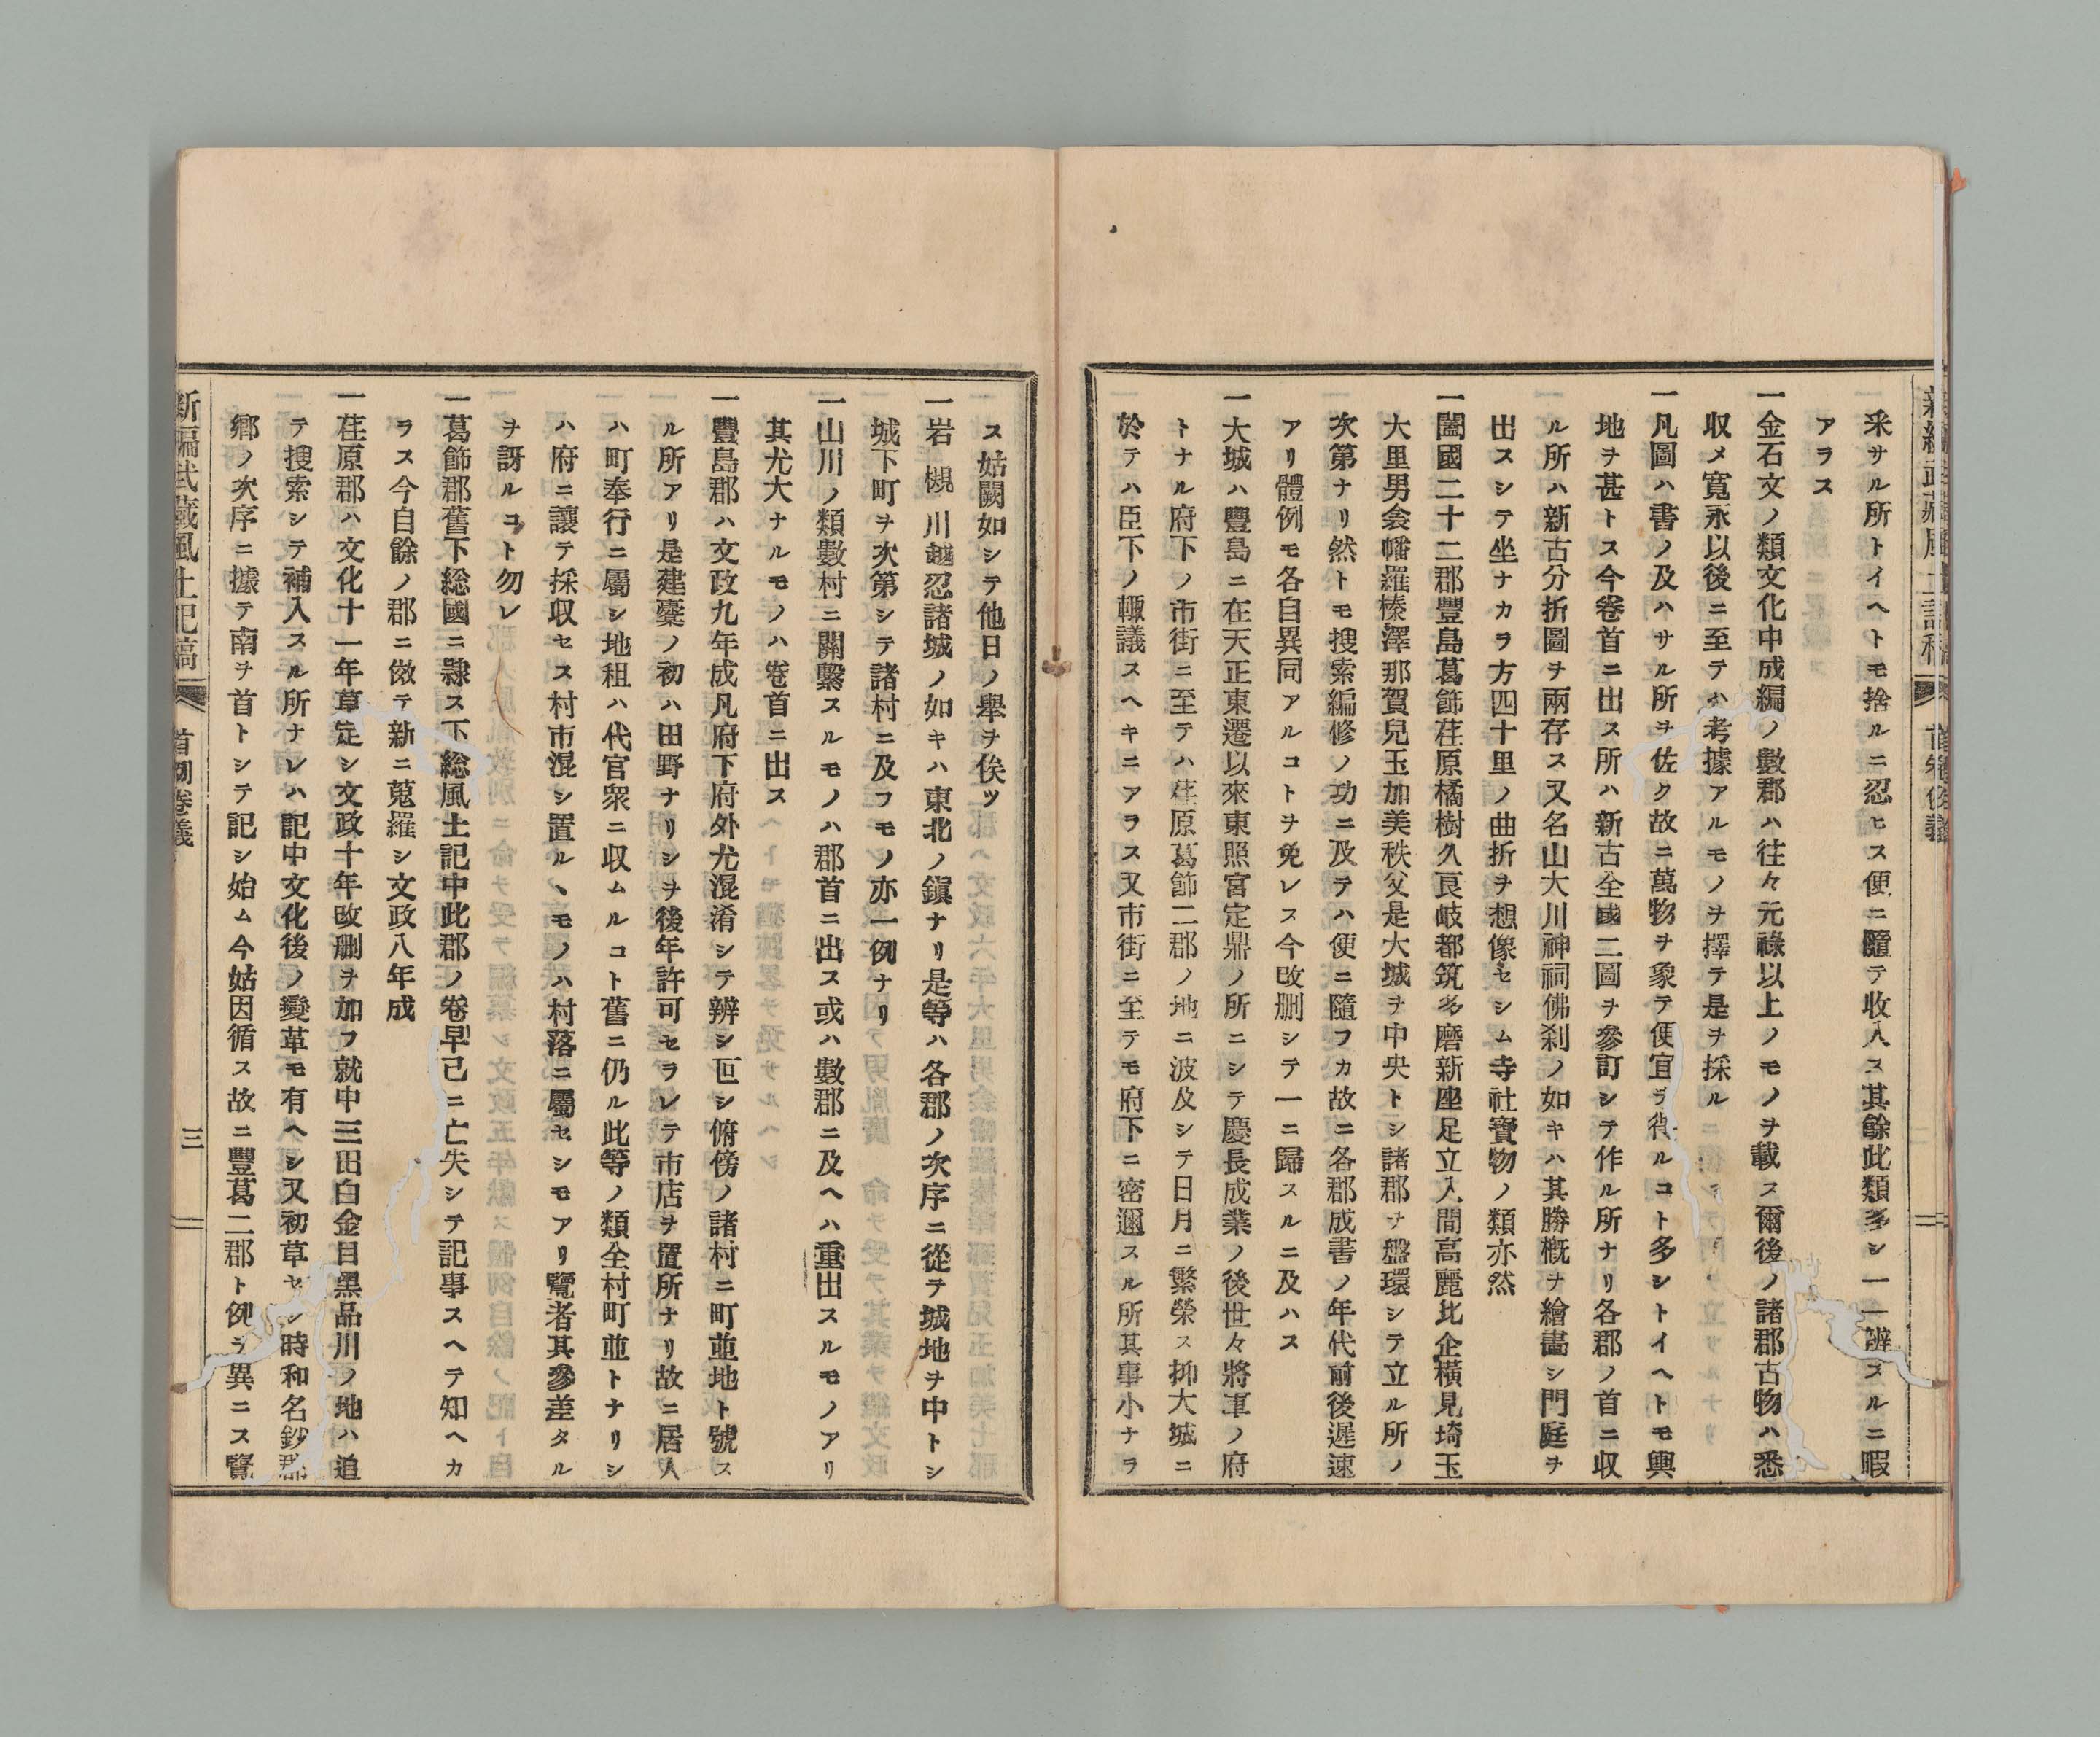 釆サル所トイヘトモ捨ルニ忍ヒス便ニ隨テ收入ス其餘此類多シ一一辨スルニ暇
アラス
一金石文ノ類文化中成編ノ數郡ハ往々元祿以上ノモノヲ載ス爾後ノ諸郡古物ハ悉
収メ寛永以後ニ至テハ考據アルモノヲ擇テ是ヲ採ル
一凡圖ハ書ノ及ハサル所ヲ佐ク故ニ萬物ヲ象テ便宜ヲ得ルコト多シトイヘトモ輿
地ヲ甚トス今卷首ニ出ス所ハ新古全國二圖ヲ參訂シテ作ル所ナリ各郡ノ首ニ収
ル所ハ新古分折圖ヲ兩存ス又名山大川神祠佛刹ノ如キハ其勝概ヲ繪畵シ門庭ヲ
出スシテ坐ナカラ方四十里ノ曲折ヲ想像セシム寺社寶物ノ類亦然
一闔國二十二郡豐島葛飾荏原橘樹久良岐都筑多磨新座足立入間高麗比企橫見埼玉
大里男衾幡羅榛澤那賀兒玉加美秩父是大城ヲ中央トシ諸郡ヲ盤環シテ立ル所ノ
次第ナリ然トモ搜索編修ノ功ニ及テハ便ニ隨フカ故ニ各郡成書ノ年代前後遲速
アリ體例モ各自異同アルコトヲ免レス今改删シテ一ニ歸スルニ及ハス
一大城ハ豐島ニ在天正東遷以來東照宮定鼎ノ所ニシテ慶長成業ノ後世々將軍ノ府
トナル府下ノ市街ニ至テハ荏原葛飾二郡ノ地ニ波及シテ日月ニ繁榮ス抑大城ニ
於テハ臣下ノ輙議スヘキニアラス又市街ニ至テモ府下ニ密邇スル所其事小ナラ
ス姑闕如シテ他日ノ舉ヲ俟ツ
一岩槻川越忍諸城ノ如キハ東北ノ鎭ナリ是等ハ各郡ノ次序ニ從テ城地ヲ中トシ
城下町ヲ次第シテ諸村ニ及フモノ亦一例ナリ
一山川ノ類數村ニ關繫スルモノハ郡首ニ出ス或ハ數郡ニ及ヘハ重出スルモノアリ
其尤大ナルモノハ卷首ニ出ス
一豐島郡ハ文政九年成凡府下府外尤混淆シテ辨シ叵シ俯傍ノ諸村ニ町並地ト號ス
ル所アリ是建櫜ノ初ハ田野ナリシヲ後年許可セラレテ市店ヲ置所ナリ故ニ居人
ハ町奉行ニ屬シ地租ハ代官衆ニ収ムルコト舊ニ仍ル此等ノ類全村町並トナリシ
ハ府ニ讓テ採収セス村市混シ置ルヽモノハ村落ニ屬セシモアリ覽者其參差タル
ヲ訝ルコト勿レ
一葛飾郡舊下総國ニ隷ス下総風土記中此郡ノ卷早已ニ亡失シテ記事スヘテ知ヘカ
ラス今自餘ノ郡ニ傚テ新ニ蒐羅シ文政八年成
一荏原郡ハ文化十一年草定シ文政十年改删ヲ加フ就中三田白金目黑品川ノ地ハ追
テ搜索シテ補入スル所ナレハ記中文化後ノ變革モ有ヘシ又初草セシ時和名鈔郡
鄉ノ次序ニ據テ南ヲ首トシテ記シ始ム今姑因循ス故ニ豐葛二郡ト例ヲ異ニス覽
新編武藏風土記稿
首卷
三